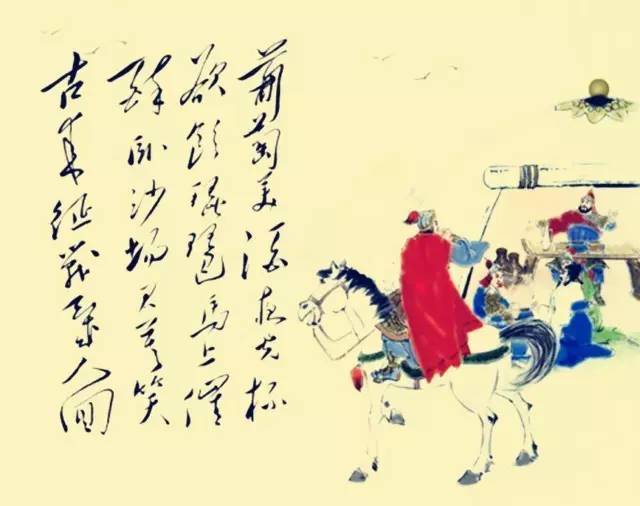 葡萄美酒夜光杯
欲饮琵琶马上催
醉卧沙场君莫笑
古来征战几人回